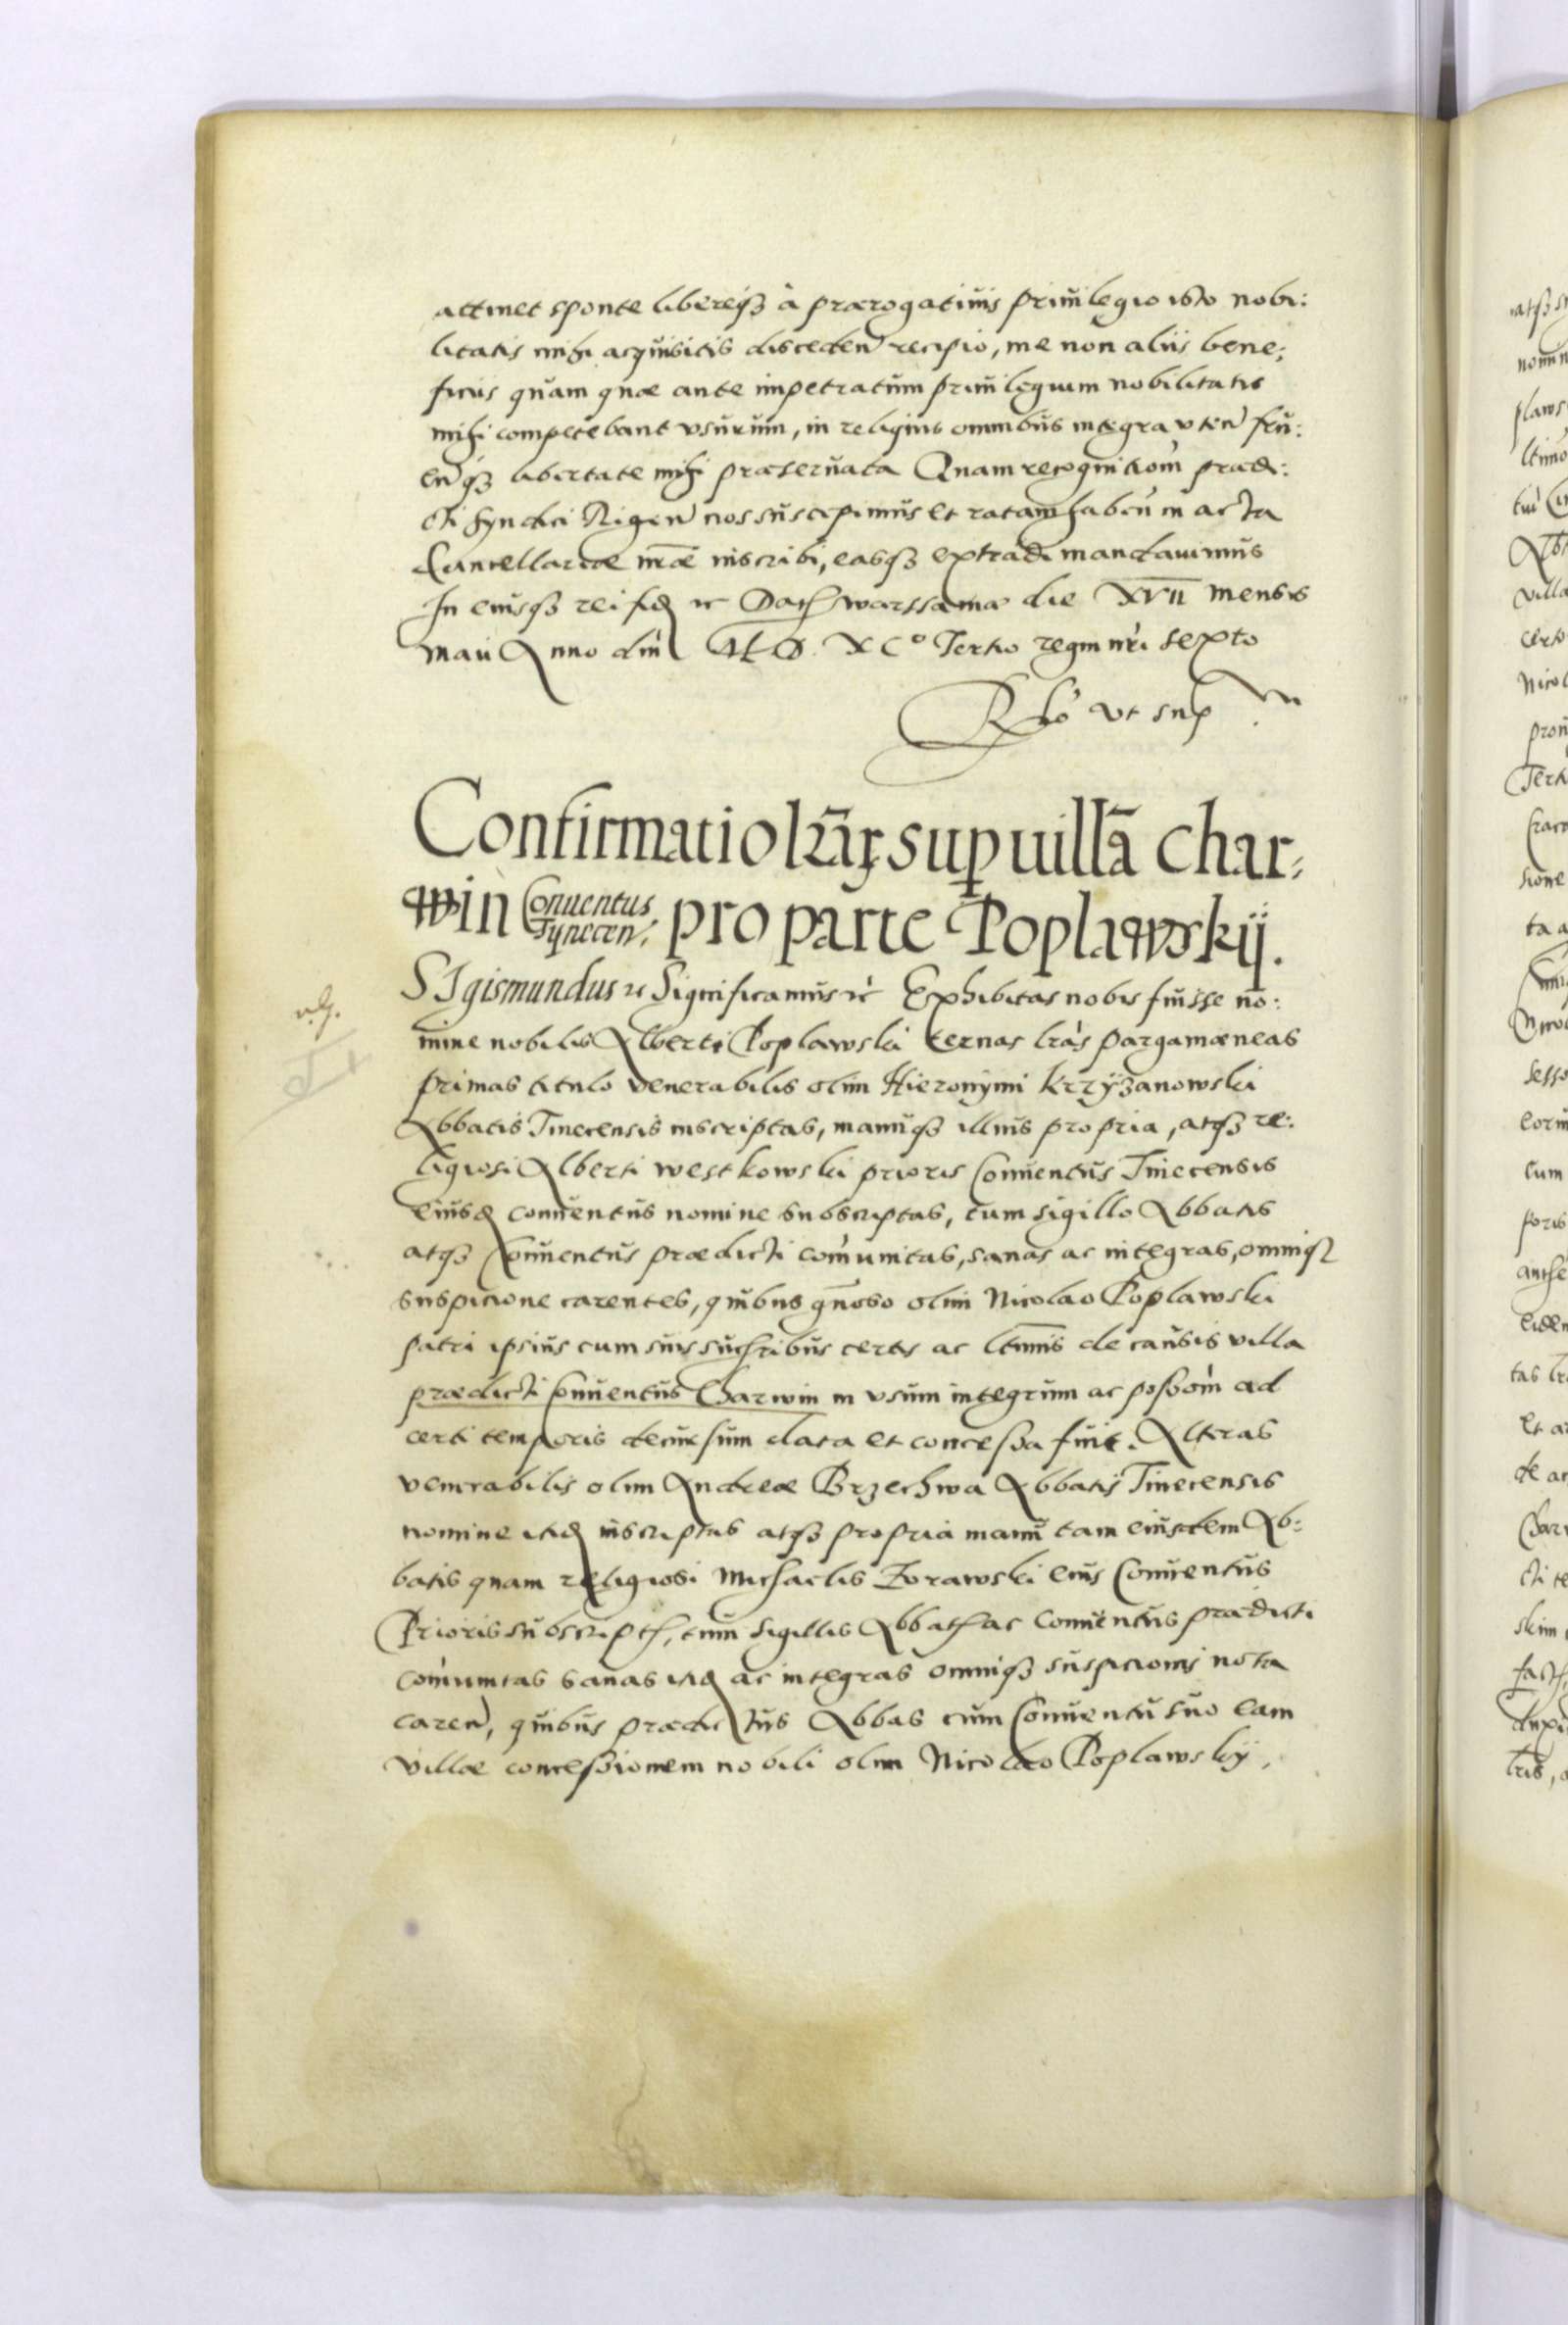 attinet sponte libereqꝫ à prærogatiuis priuilegio isto nobi:
litatis mihi acquisitis disceden̄ recipio, me non aliis bene:
ficiis quam quæ ante impetratum priuilegium nobilitatis
mihi competebant vsurum, in reliquis omnibus integra uten̄ fru:
en̄qꝫ libertate mihi præseruata Quam recognitiom̄ prædi:
cti syndici Rigen̄ nos suscepimus et ratam haben̄ in acta
Cancellariæ nr̄æ inscribi, easqꝫ extradi mandauimus
In cuiusqꝫ rei fid ꝛc Dat Warssauiæ die XVII mensis
Maii Anno din̄ MD. XCº Tertio regni nr̄i sexto
Rlō vt sup
Confirmatio lrā֞ꝝ sup uillā Char:
win Conuentus Tynecen: pro parte Poplawskij.
SIgismundus ꝛc Significamus ꝛc Exhibitas nobis fuisse no:
mine nobilis Alberti Poplawski ternas lrās pargamæneas
primas titulo venerabilis olim Hieronymi Krzyżanowski
Abbatis Tinecensis inscriptas, manuqꝫ illius propria, atqꝫ re:
ligiosi Alberti Westkowski prioris Conuentus Tinecensis
eiusd conuentus nomine subscriptas, cum sigillo Abbatis
atqꝫ Conuentus prædicti com̄unitas, sanas ac integras, omniqꝫ
suspicione carentes, quibus gn̄oso olim Nicolao Poplawski
patri ipsius cum suis suc̄ribus certis ac ltimis de causis villa
prædicti Conuentus Charwin in vsum integrum ac possom̄ ad
certi temporis decursum data et concessa fuit. Alteras
venerabilis olim Andreæ Brzechwa Abbatis Tinecensis
nomine itid inscriptas atqꝫ propria manu tam eiusdem Ab:
batis quam religiosi Michaelis Zorawski eius Conuentus
Prioris subscript, cum sigillis Abbat ac Conuentus prædicti
com̄unitas sanas itid ac integras omniqꝫ suspicionis nota
caren̄, quibus prædictus Abbas cum Conuentu suo eam
villæ concessionem nobili olim Nicolao Poplawskij,